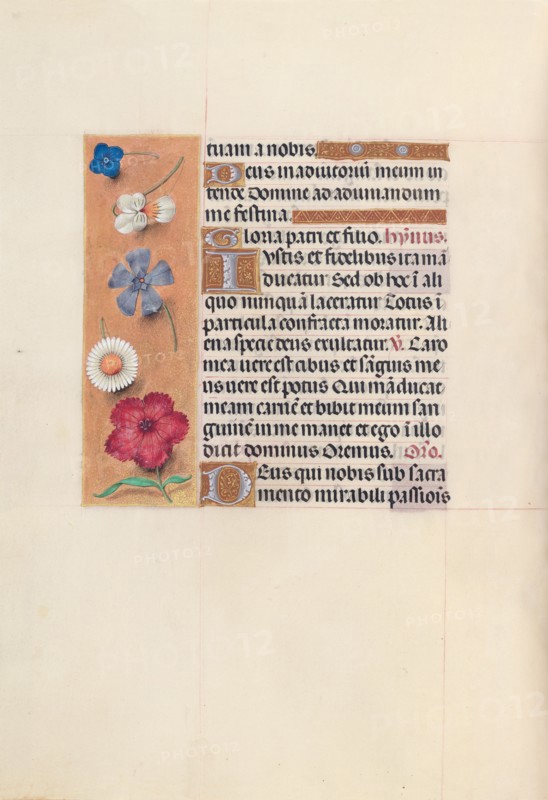 tuam a nobis.
Deus in adiutoriū meum in
tende Domine ad adiuuandum
me festina.
Gloria patri et filio. hymnus.
Iustis et fidelibus ita mā
ducatur Sed ob hoc ī ali
quo nunquā laceratur Totus ī
particula confracta moratur. Ali
ena specie deus exultatur. V. Caro
mea uere est cibus et sāguis me
us uere est potus Qui māducat
meam carnē et bibit meum san
guinē in me manet et ego ī illo
dicit dominus Oremus. Oro.
DEus qui nobis sub sacra
mento mirabili passiois
PHOTO12